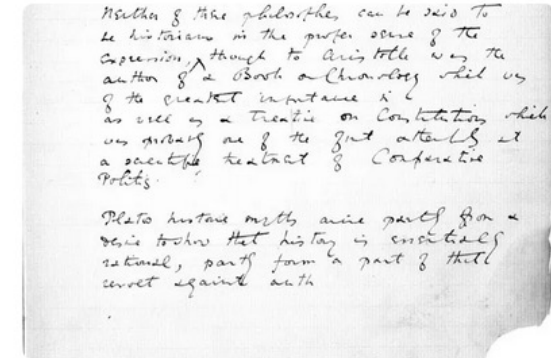 Neither of these philosophes can be said to
be historians in the proper sense of the
expression, though to Aristotle was the
author of a Book on Chronology which was
of the greatest importance
as well as a treatise on Constitutions which
was probably one of the first attempts at
a scientific treatment of Comparative
Politics.
Platos historic myths arise partly from a
desire to show that history is essentially
rational, partly form a part of
revolt against auth